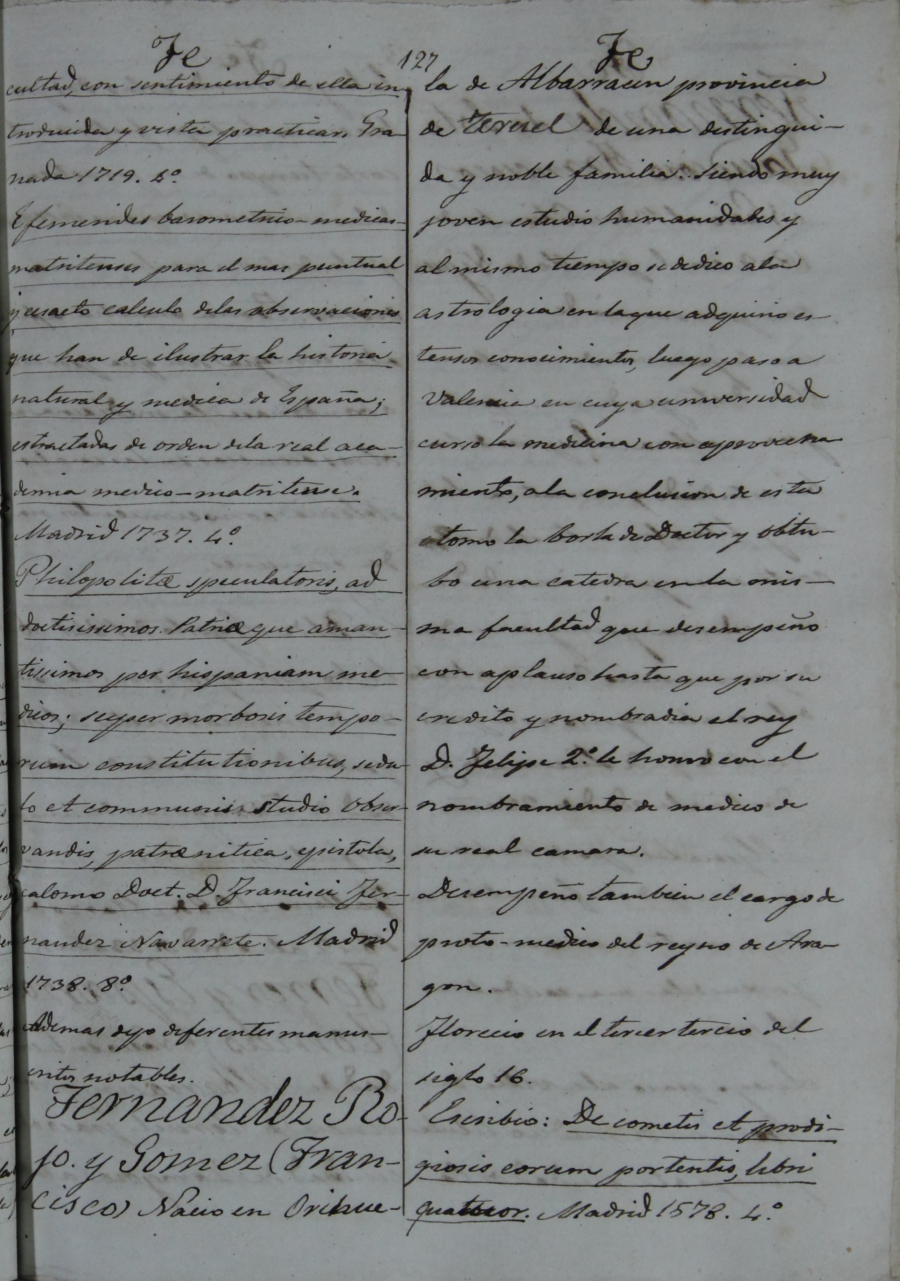 Fe
cultad, con sentimiento de ella in
troducida y vista practicar. Gra-
nada 1719. 4º
Efemerides barometrico-medicas-
matritenses para el mas puntual
y esacto calculo delas observaciones
que han de ilustrar la historia
natural y medica de España;
estractadas de orden dela real aca-
demia medico-matritense.
Madrid 1737. 4º
Philopolitæ speculatoris, ad
doctisissimos Patriæ que aman-
tissimos per hispaniam me-
dicos; super morbosis tempo-
rum constitutionibus, sedu-
lo et communi studio obser-
vandis, parænitica, epistola,
calamo Doct. D Francisci Fer-
nandez Navarrete. Madrid
1738. 8º
Ademas dejo diferentes manus-
critos notables.
Fernandez Ro-
jo. y Gomez (Fran-
cisco) Nacio en Orihue-
127
Fe
la de Albarracin provincia
de Teruel de una distingui-
da y noble familia. Siendo muy
joven estudio humanidades y
al mismo tiempo se dedico ala
astrologia en la que adquirio es-
tensos conocimientos, luego paso a
Valencia en cuya universidad
curso la medicina con aprovecha
miento, ala conclusion de esta
tomo la borla de Doctor y obtu-
bo una catedra en la mis-
ma facultad que desempeño
con aplauso hasta que por su
credito y nombradia el rey
D. Felipe 2º le honro con el
nombramiento de medico de
su real camara.
Desempeño tambien el cargo de
proto-medico del reyno de Ara-
gon.
Florecio en el tercer tercio del
siglo 16.
Escribio: De cometis et prodi-
giosis eorum portentis, libri
quatuor. Madrid 1578. 4º